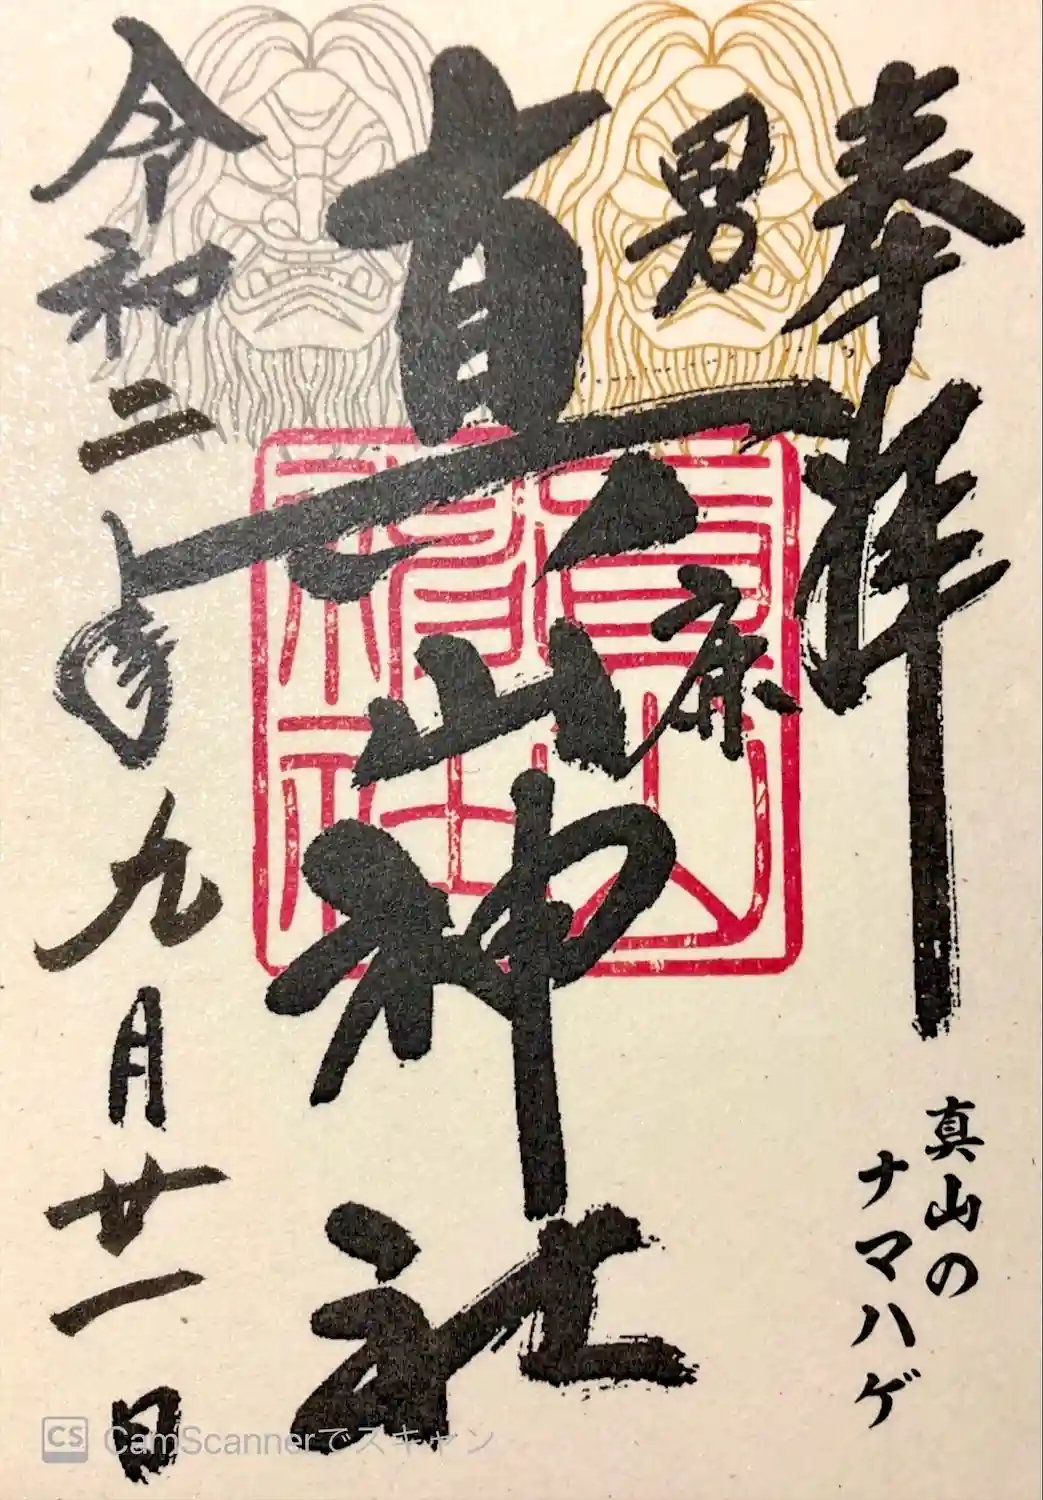 奉拝
真山の
ナマハゲ
男鹿
真山神社
令和二年九月廿一日
真山
神社
CS CamScannerでスキャン